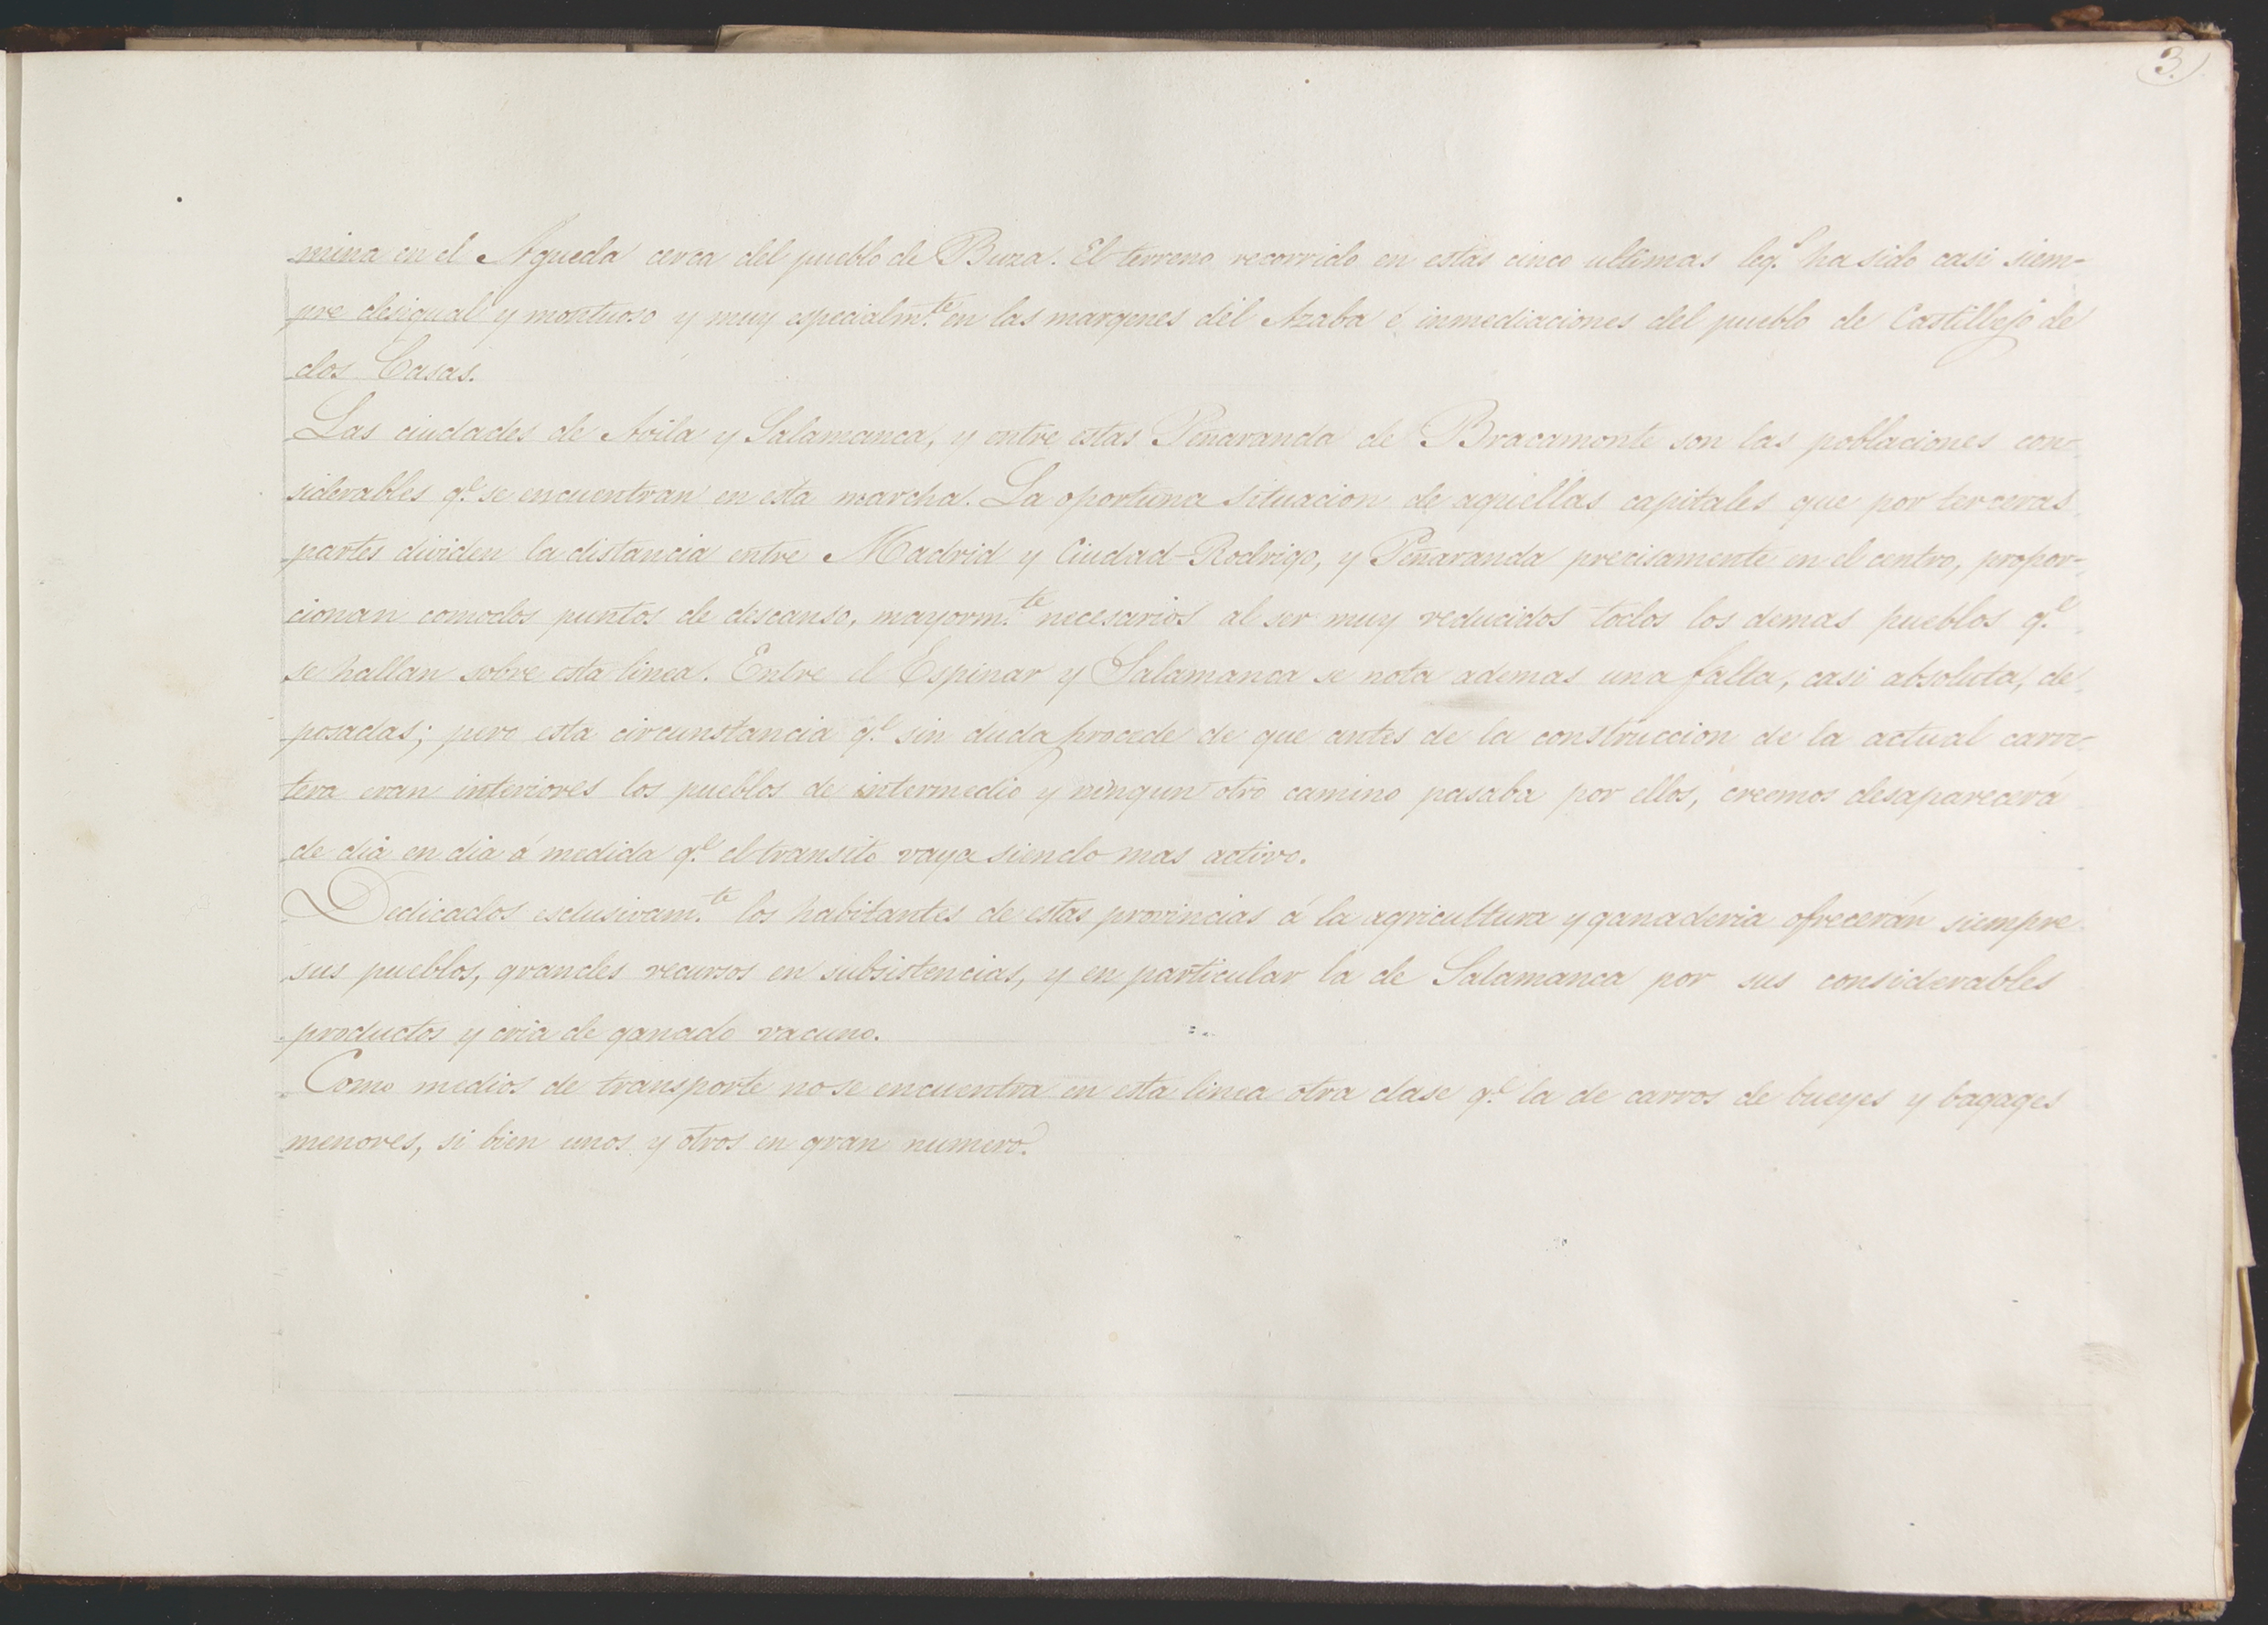 3.
mina en el Agueda cerca del pueblo de Buza. El terreno recorrido en estas cinco ultimas leg.s ha sido casi siem-
pre desigual y montuoso y muy especialm.te en las margenes del Azaba é inmediaciones del pueblo de Castillejo de
dos Casas.
Las ciudades de Avila y Salamanca, y entre estas Peñaranda de Bracamonte son las poblaciones con-
siderables q.e se encuentran en esta marcha. La oportuna situacion de aquellas capitales que por terceras
partes dividen la distancia entre Madrid y Ciudad-Rodrigo, y Peñaranda precisamente en el centro, propor-
cionan comodos puntos de descanso, mayorm.te necesarios al ser muy reducidos todos los demas pueblos q.e
se hallan sobre esta linea. Entre el Espinar y Salamanca se nota ademas una falta, casi absoluta, de
posadas; pero esta circunstancia q.e sin duda procede de que antes de la construccion de la actual carre-
tera eran interiores los pueblos de intermedio y ningun otro camino pasaba por ellos, creemos desaparecerá
de dia en dia á medida q.e el transito vaya siendo mas activo.
Dedicados esclusivam.te los habitantes de estas provincias á la agricultura y ganaderia ofrecerán siempre
sus pueblos, grandes recursos en subsistencias, y en particular la de Salamanca por sus considerables
productos y cria de ganado vacuno.
Como medios de transporte no se encuentra en esta linea otra clase q.e la de carros de bueyes y bagages
menores, si bien unos y otros en gran numero.